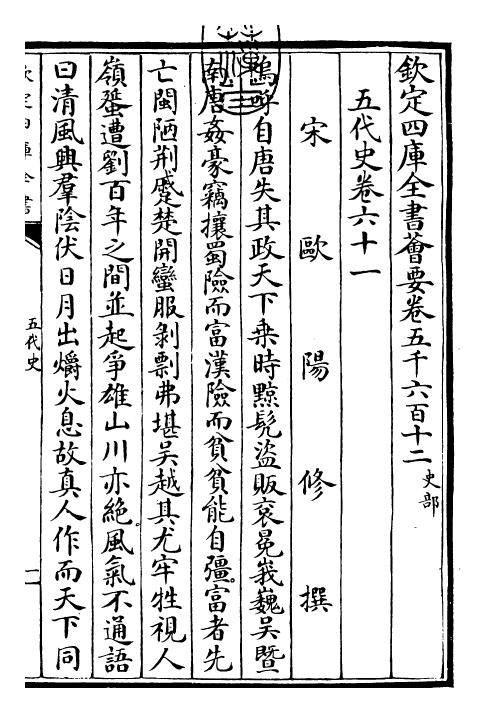 欽定四庫全書薈要卷五千六百十二 史部
五代史卷六十一
宋 歐 陽 修 撰
嗚呼自唐失其政天下乗時黥髠盜販衮冕峩巍吳暨
南唐姦豪竊攘蜀險而富漢險而貧貧能自彊富者先
亡閩陋荆蹙楚開蠻服剝剽弗堪吳越其尤牢牲視人
嶺蜑遭劉百年之間並起爭雄山川亦絶風氣不通語
曰清風興羣陰伏日月出爝火息故真人作而天下同
欽定四庫全書
五代史
一